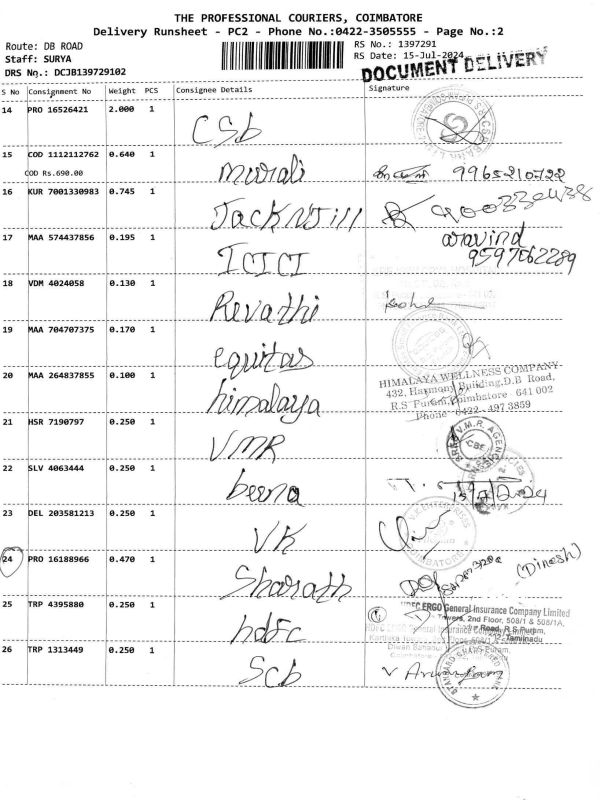 THE PROFESSIONAL COURIERS, COIMBATORE
Delivery Runsheet - PC2 - Phone No.:0422-3505555 - Page No.:2
Route: DB ROAD
Staff: SURYA
DRS No.: DCJB139729102
RS No.: 1397291
RS Date: 15-Jul-2024
DOCUMENT DELIVERY
S No Consignment No Weight PCS Consignee Details Signature
14 PRO 16526421 2.000 1 CSb
15 COD 1112112762 0.640 1 murali 9965210722
COD Rs.690.00
16 KUR 7001330983 0.745 1 Jack N Jill
17 MAA 574437856 0.195 1 ICICI aravind
9597562289
18 VDM 4024058 0.130 1 Revathi
19 MAA 704707375 0.170 1 equitas
20 MAA 264837855 0.100 1 himalaya
HIMALAYA WELLNESS COMPANY
432, Harmony Building, D.B Road,
R.S Puram, Coimbatore - 641 002
Phone 0422 - 497 3859
21 HSR 7190797 0.250 1 VMR
V.M.R. AGENCIES
CBE
22 SLV 4063444 0.250 1 beena 15/7/2024
23 DEL 203581213 0.250 1 VK
V.K ENTERPRISES
COIMBATORE
24 PRO 16188966 0.470 1 Sharath (Dinesh)
25 TRP 4395880 0.250 1 hdfc
HDFC ERGO General Insurance Company Limited
Towers, 2nd Floor, 508/1 & 508/1A,
Road, R.S Puram,
Tamilnadu
26 TRP 1313449 0.250 1 Scb
STANDARD CHARTERED BANK